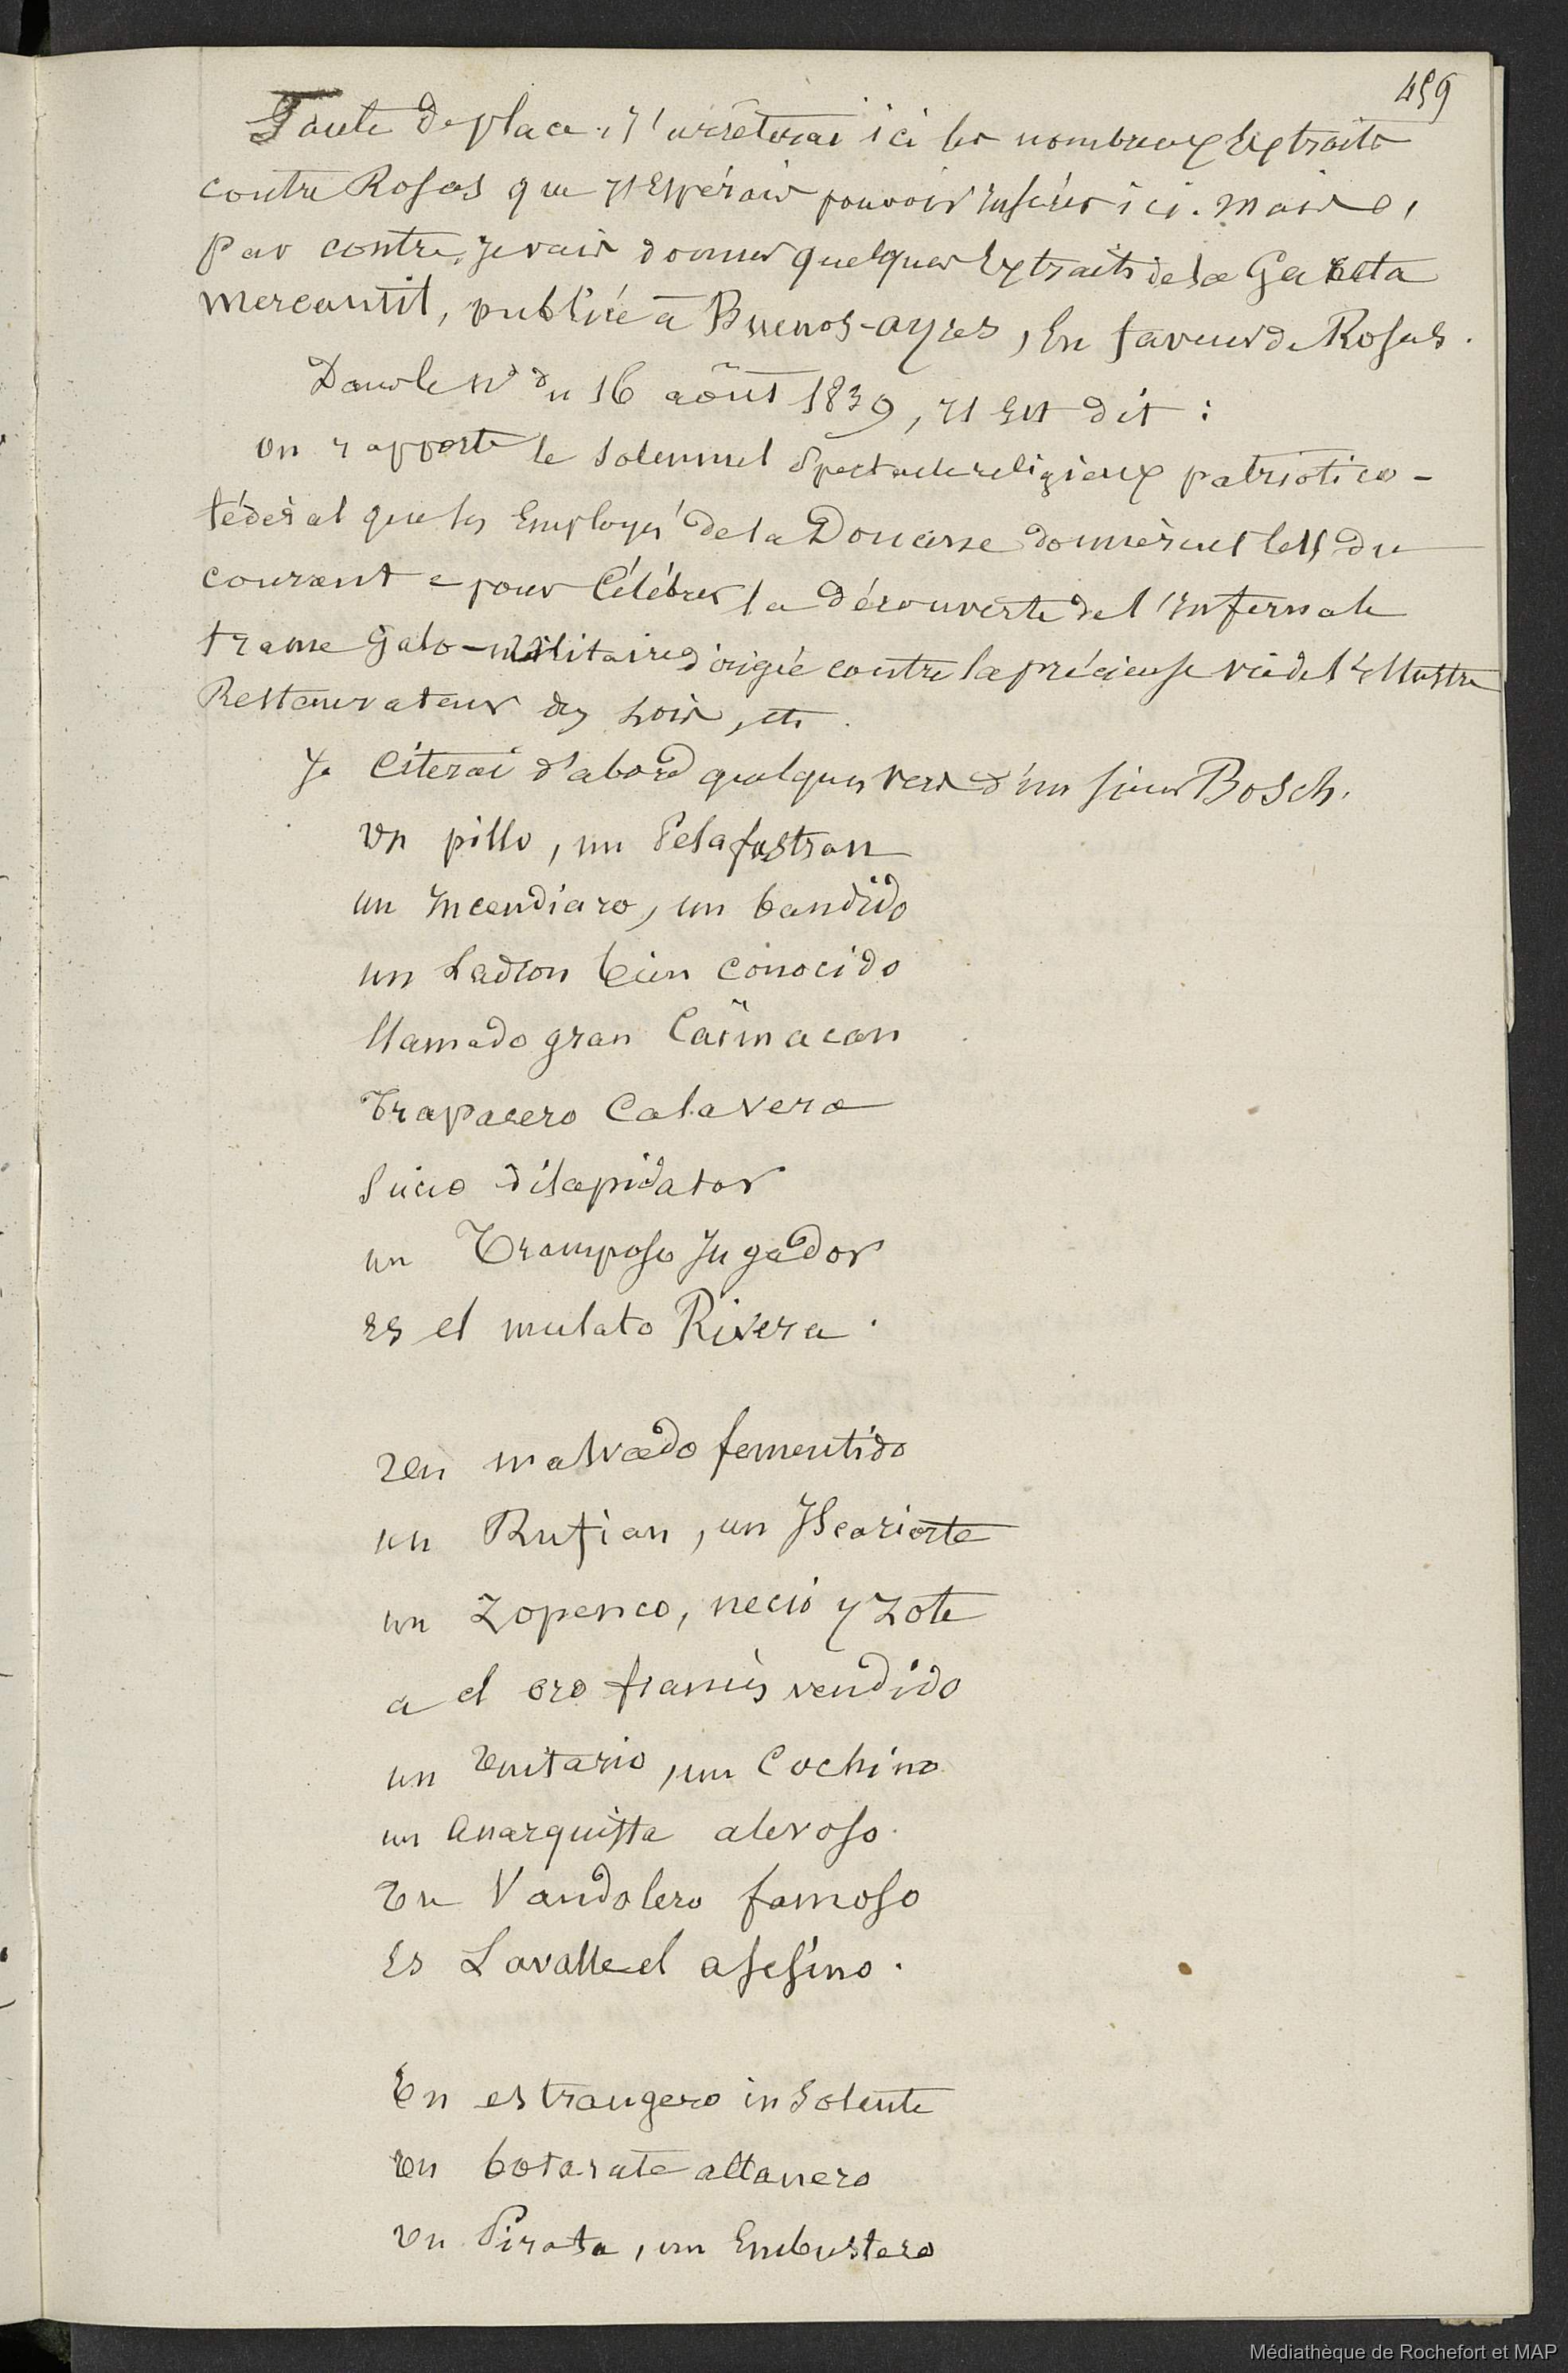 459
Faute de place, j'arrêterai ici les nombreux Extraits
contre Rosas que j'Espérais pouvoir insérer ici. mais,
par contre, je vais donner quelques Extraits de la Gaceta
mercantil, publiée à Buenos-ayres, En faveur de Rosas.
Dans le No du 16 août 1839, il Est dit :
on rapporte le solennel spectacle religieux patriotico-
fédéral que les Employés de la Douane donnèrent le 11 du
courant pour Célébrer la découverte de l'infernale
trame Galo-militaire dirigée contre la précieuse vie de l'illustre
Restaurateur des Lois, etc.
Je Citerai d'abord quelques vers d'un sieur Bosch.
Un pillo, un Pelafustran
un Incendiaro, un bandido
un Ladron bien conocido
llamado gran Caïmacan
Trapacero Calavera
Sucio dilapidator
un Tramposo Jugador
es el mulato Rivera.
Un malvado fementido
un Rufian, un Iscariote
un Zopenco, necio y zote
a el oro francès vendido
un Unitario, un Cochino
un Anarquista alevoso.
Un Vandolero famoso
Es Lavalle el asesino.
Un estrangero insolente
Un botarate altanero
Un Pirata, un Embustero
Médiathèque de Rochefort et MAP